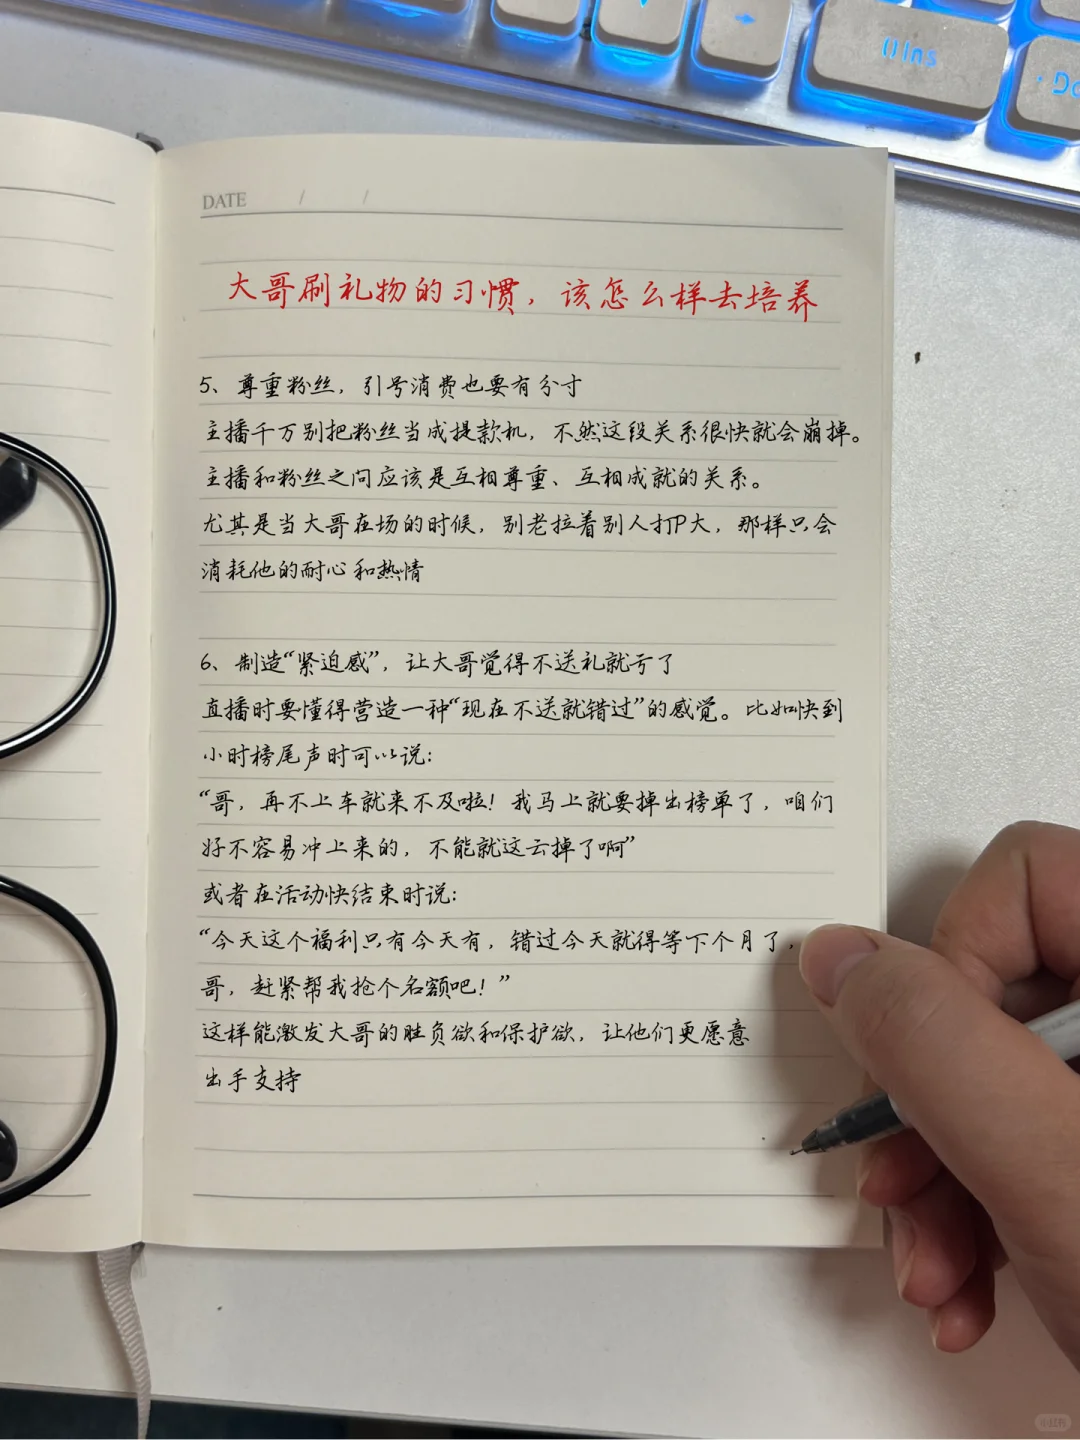 Ins
DATE / /
大哥刷礼物的习惯，该怎么样去培养
5、尊重粉丝，引号消费也要有分寸
主播千万别把粉丝当成提款机，不然这段关系很快就会崩掉。
主播和粉丝之间应该是互相尊重、互相成就的关系。
尤其是当大哥在场的时候，别老拉着别人打P大，那样只会
消耗他的耐心和热情
6、制造“紧迫感”，让大哥觉得不送礼就亏了
直播时要懂得营造一种“现在不送就错过”的感觉。比如快到
小时榜尾声时可以说：
“哥，再不上车就来不及啦！我马上就要掉出榜单了，咱们
好不容易冲上来的，不能就这云掉了啊”
或者在活动快结束时说：
“今天这个福利只有今天有，错过今天就得等下个月了，
哥，赶紧帮我抢个名额吧！”
这样能激发大哥的胜负欲和保护欲，让他们更愿意
出手支持